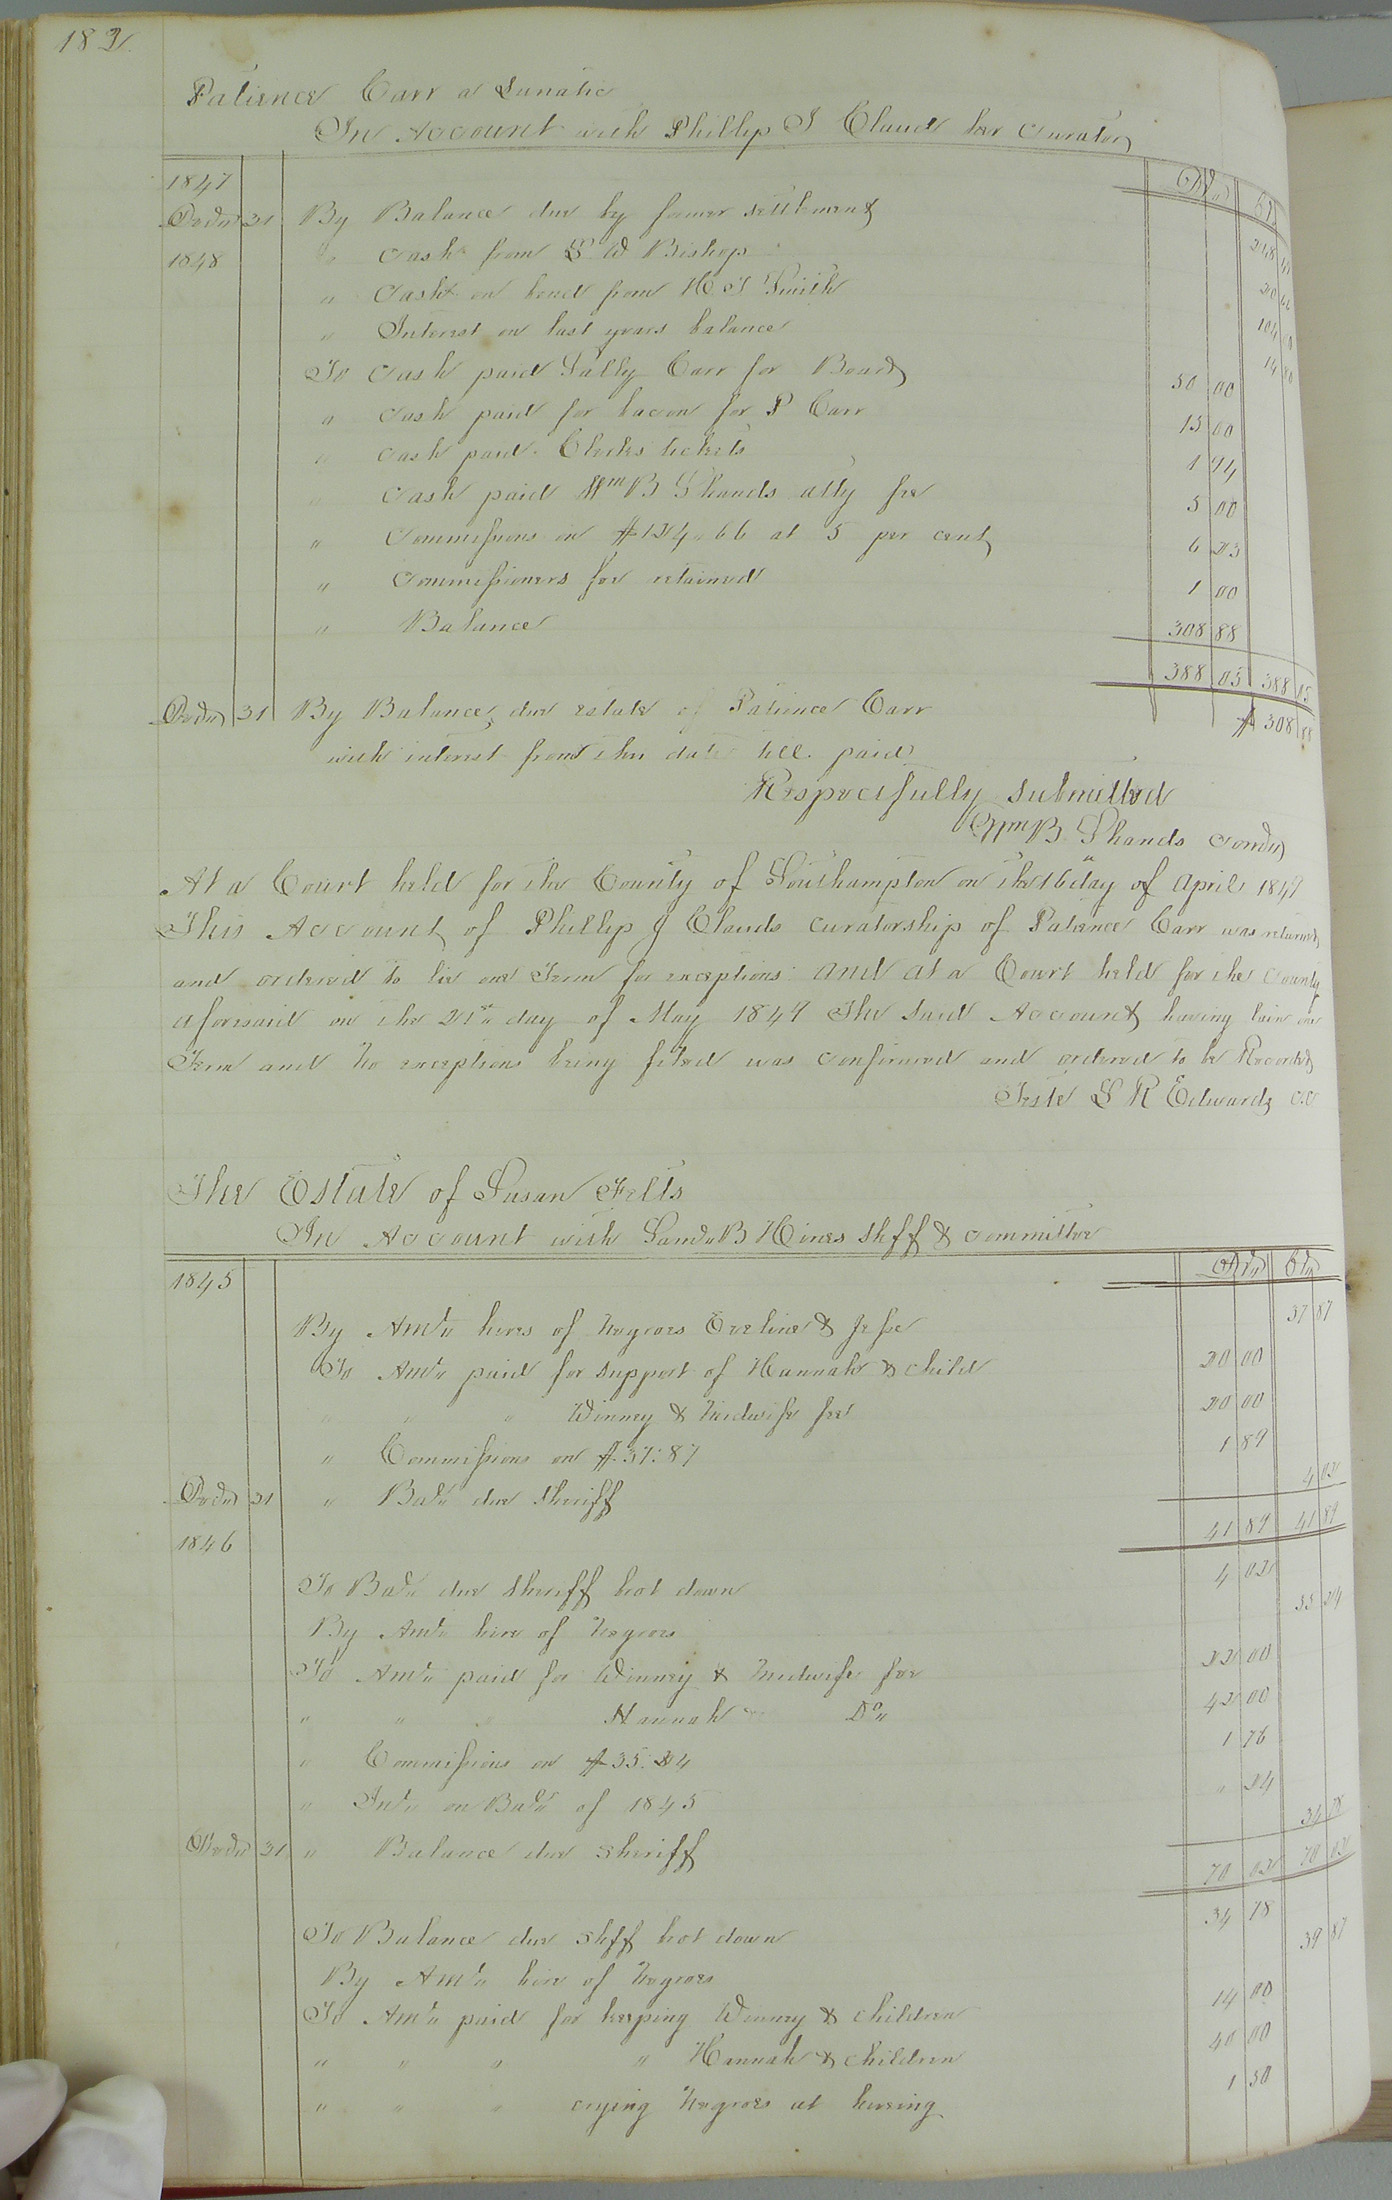 182
Patience Carr a Lunatic
In Account with Phillip J Claud her Curator
1847 Dr Cr
Decr 31 By Balance due by former settlement 248 41
1848 " Cash from L W Bishop 20 66
" Cash on bond from H J Smith 104
" Interest on last years balance 14
To Cash paid Sally Carr for Board 50 00
" Cash paid for bacon for P Carr 15 00
" Cash paid Clerks tickets 1 94
" Cash paid Wm B Shands atty fee 5 00
" Commissions on $124.66 at 5 per cent 6 23
" Commissioners fee retained 1 00
" Balance 308 88
388 05 388 05
Decr 31 By Balance due estate of Patience Carr $308 88
with interest from this date till paid
Respectfully submitted
Wm B Shands Comr
At a Court held for the County of Southampton on the 16th day of April 1849
This Account of Phillip J Clauds Curatorship of Patience Carr was returned
and ordered to lie one Term for exceptions. And at a Court held for the County
aforesaid on the 21st day of May 1849 The said Account having lain one
Term and no exceptions being filed was confirmed and ordered to be Recorded
Teste L R Edwards CC
The Estate of Susan Felts
In Account with Saml B Hines Shff & Committee
1845 Dr Cr
By Amt hires of Negroes Eveline & Jesse 37 87
To Amt paid for support of Hannah & child 20 00
" " " Winney & Midwife fee 20 00
" Commissions on $37.87 1 89
Decr 31 " Bal due Sheriff 4 02
41 89 41 89
1846
To Bal due Sheriff brot down 4 02
By Amt hire of Negroes 35 24
To Amt paid for Winney & Midwife fee 22 00
" " " Hannah Do 42 00
" Commissions on $35.24 1 76
" Int on Bal of 1845 " 24
Decr 31 " Balance due Sheriff 34 78
70 02 70 02
To Balance due Shff brot down 34 78
By Amt hire of Negroes 39 87
To Amt paid for keeping Winney & children 14 00
" " " " Hannah & children 40 00
" " " crying Negroes at hireing 1 50